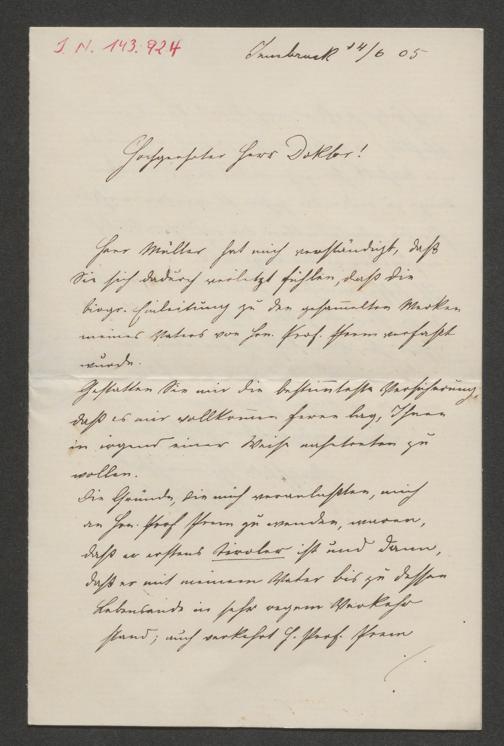 I. N. 143.924
Innsbruck 14/6 05
Hochgeehrter Herr Doktor!
Herr Müller hat mich verständigt, daß
Sie sich dadurch verletzt fühlen, daß die
biogr. Einleitung zu den gesam̅elten Werken
meines Vaters von Hrn. Prof. Prem verfaßt
wurde.
Gestatten Sie mir die bestim̅teste Versicherung,
daß es mir vollkom̅en ferne lag, Ihnen
in irgend einer Weise nahetreten zu
wollen.
Die Gründe, die mich veranlaßten, mich
an Hrn. Prof Prem zu wenden, waren,
daß er erstens Tiroler ist und dann,
daß er mit meinem Vater bis zu dessen
Lebensende in sehr regem Verkehr
stand; auch verkehrt H. Prof. Prem